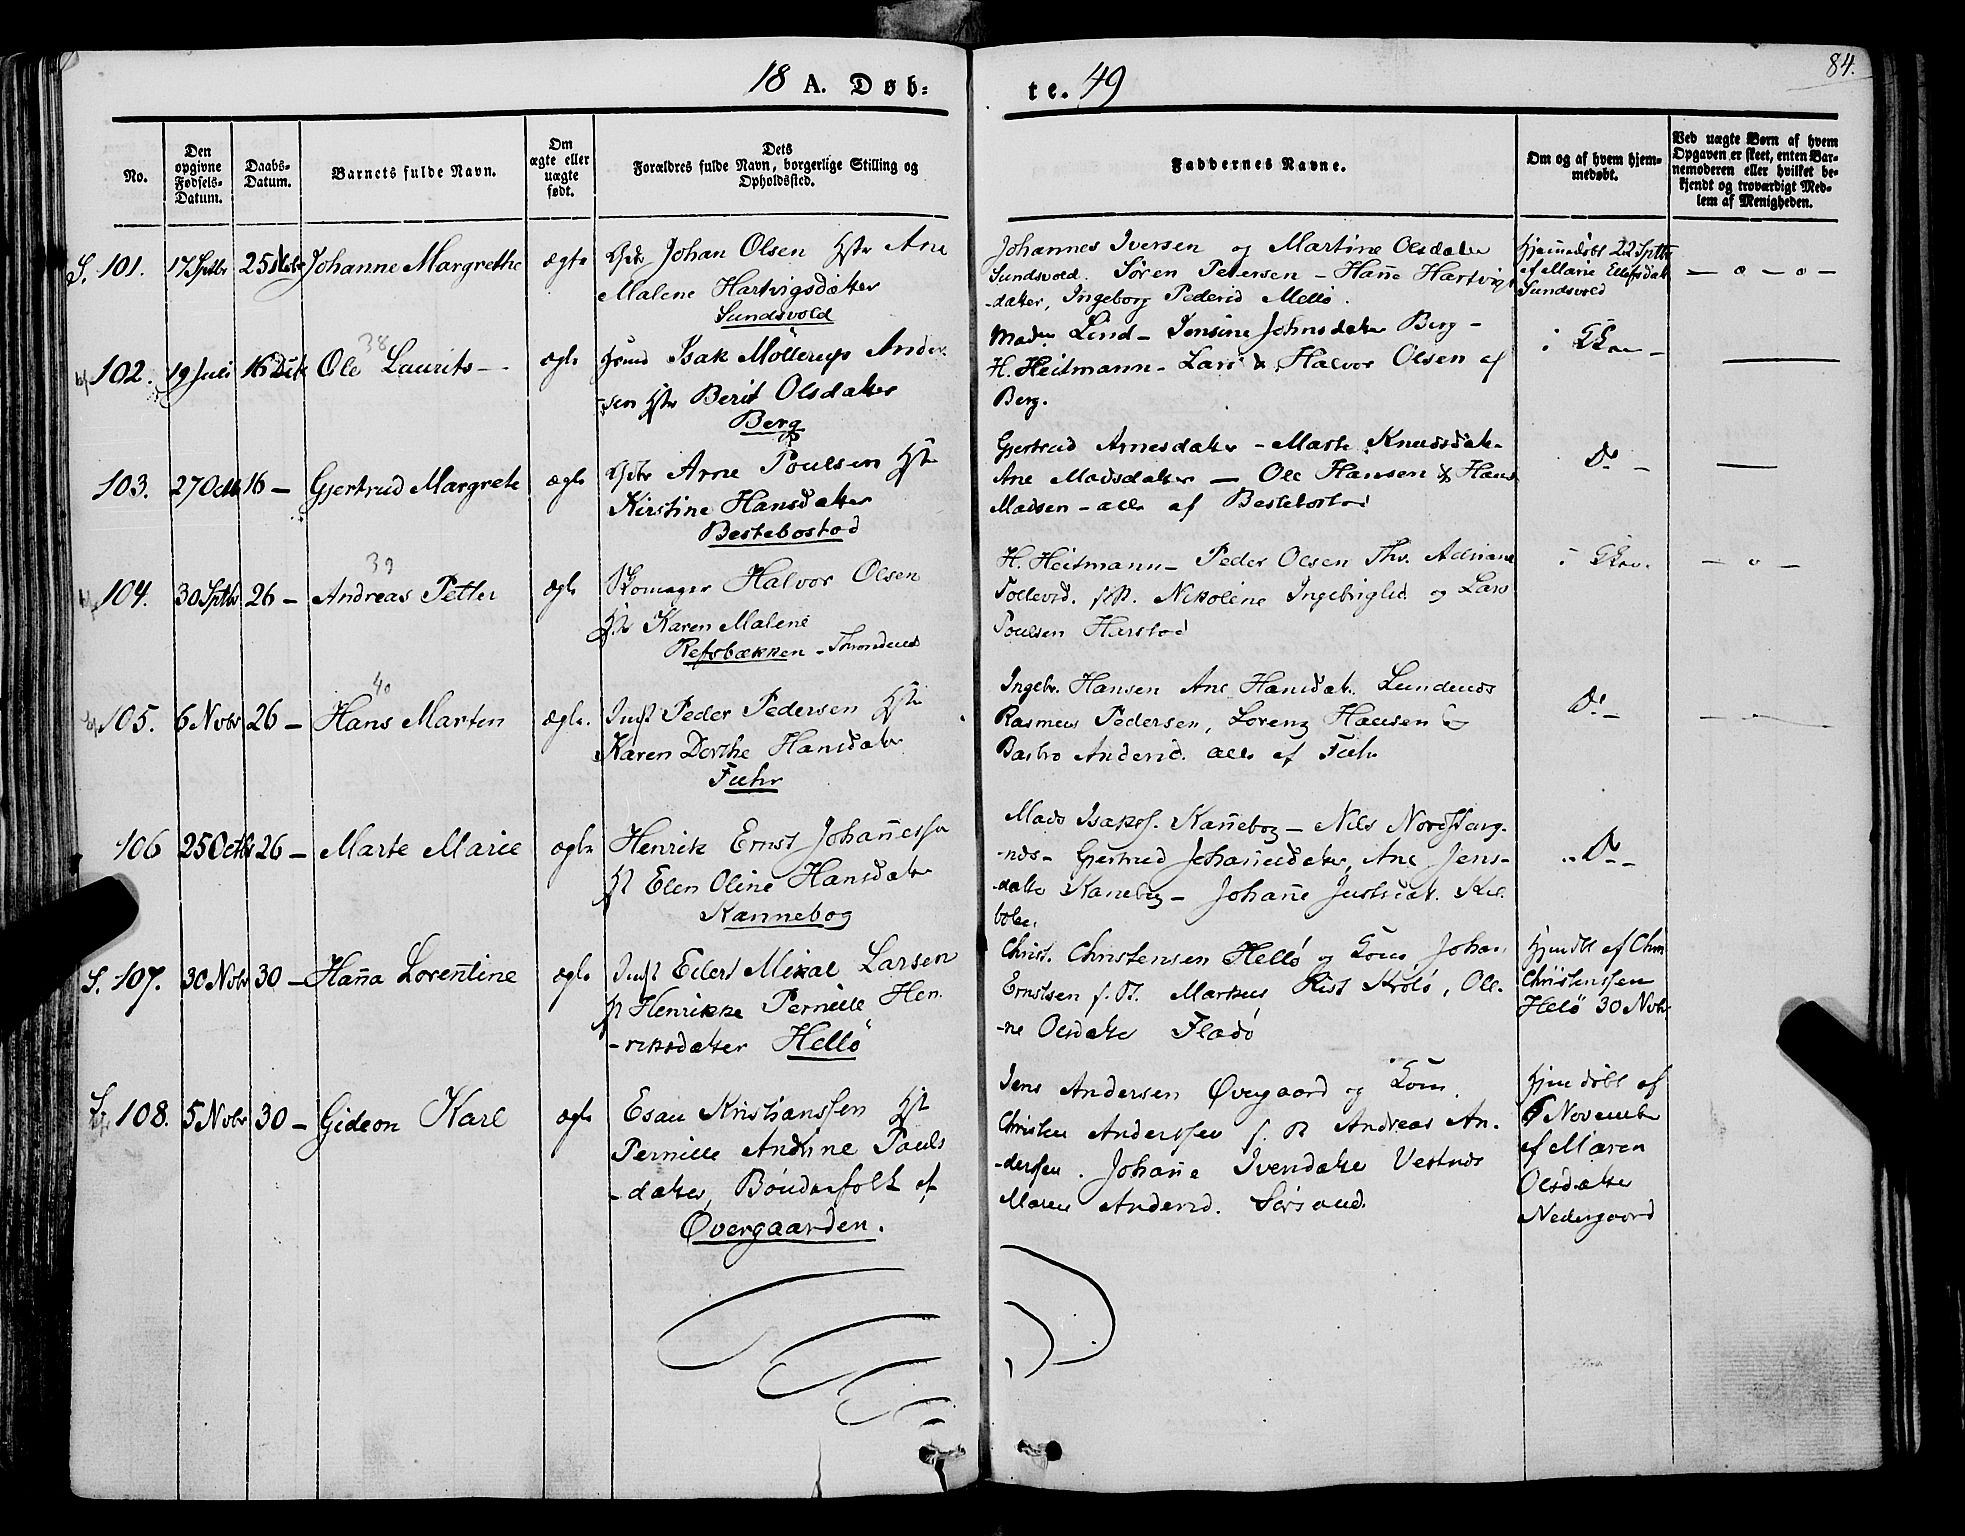 18 A. Døb-
te. 49
84.
No.
Den opgivne Fødsels-Datum.
Daabs-Datum.
Barnets fulde Navn.
Om ægte eller uægte født.
Dets
Forældres fulde Navn, borgerlige Stilling og
Opholdssted.
Faddernes Navne.
Om og af hvem hjem-
medøbt.
Ved uægte Børn af hvem
Opgaven er skeet, enten Bar-
nemoderen eller hvilket be-
kjendt og troværdigt Med-
lem af Menigheden.
S. 101. 17 Sptbr 25 Johanne Margrethe ægte
Johan Olsen Ane
Malene Hartvigsdatter
Sundsvold
Johannes Iversen og Martine Olsdatter
Sundsvold. Søren Petersen - Hañe Hartvigs
-datter, Ingeborg Pedersd Mellø.
Hjemmedøbt 22 Sptbr
af Marie Ellefsdatt
Sundsvold
— o — o —
102. 19 Juli 16 38 Ole Laurits — ægte
Isak Möllerup Ander
sen Berit Olsdatter
Berg
Lind - Jensine Johnsdatter Berg -
H. Heitmann - Lars & Halvor Olsen af
Berg.
i
103. 27 Octb 16 — Gjertrud Margrete ægte
Arne Poulsen
Kirstine Hansdatter
Bestebostad
Gjertrud Arnesdatter - Marte Knudsdatt-
Ane Madsdatter — Ole Hansen & Hans
Madsen - alle af Bestebostad
Do -
104. 30 Sptbr 26 — 39 Andreas Petter ægte
Skomager Halvor Olsen
Karen Malene
Refsbækken - Throndenes
H. Heitmann - Peder Olsen Adriane
Tollevsd. Nikoline Ingebrigtsd. og Lars
Poulsen Harstad
— o —
105. 6 Novbr 26 — 40 Hans Marten ægte.
Inst Peder Pedersen
Karen Dorthe Hansdatter
Fuhr
Ingebr. Hansen Ane Hansdatt. Lundenes
Rasmus Pedersen, Lorenz Hansen &
Barbro Andersd. alle af Fuhr
Do -
106 25 Octbr 26 — Marte Marie ægte
Henrik Ernst Johañessen
Elen Oline Hansdatter
Kannebog
Mads Isaks. Kañebog - Nils
-nes - Gjertrud Johañesdatter, Ane Jens-
datter Kanebog - Johañe
Do -
S. 107. 30 Novbr 30 — Haña Lorentine ægte
Inst Edert Mikal Larsen
Henrikke Pernille Hen
-riksdatter Hellø
Christ. Christensen Hellø og Johan
Ernstsen Markus Krøtø, Oli-
-ne Olsdatter Fladø
Hjemdbt af Chri
Christenssen
Helø 30 Novbr
108. 5 Novbr 30 — Gideon Karl ægte
Esau Kristianssen
Pernille Andrine Pauls
-datter, Bøndrefolk af
Øvergaarden.
Jens Andersen Øvergaard og
Christen Anderssen Andreas An-
-derssen. Johañe Iversdatter Vestnes
Maren Andersd. Sørsand.
Hjemdøbt af
6 November
af Maren
Olsdatter
Nedergaard